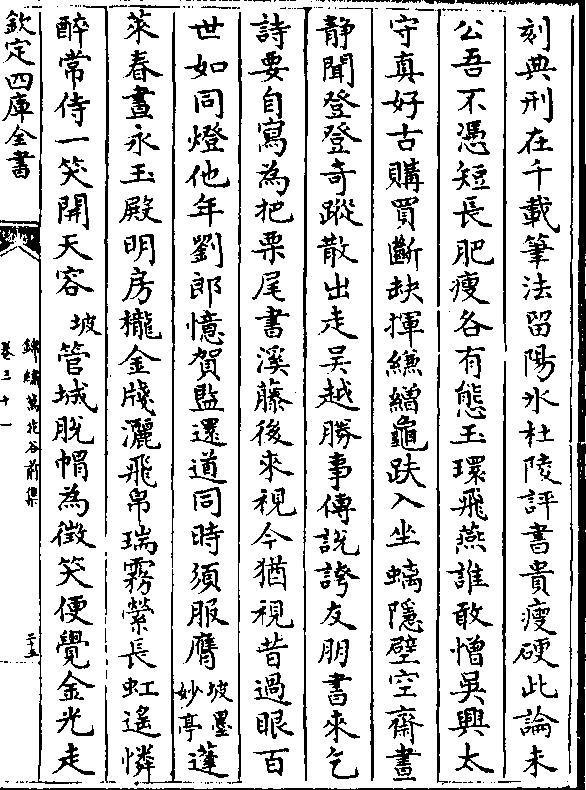 刻典刑在千載筆法留陽氷杜陵評書貴瘦硬此論未
公吾不憑短長肥瘦各有態玉環飛燕誰敢憎吳興太
守真好古購買斷缺揮縑繒龜趺入坐螭隱壁空齋晝
静聞登登奇蹤散出走吳越勝事傳說誇友朋書來乞
詩要自寫為把栗尾書溪藤後來視今猶視昔過眼百
世如同燈他年劉郎憶賀監還道同時須服膺坡墨妙亭蓬
萊春晝永玉殿明房櫳金牋灑飛帛瑞霧縈長虹遙憐
醉常侍一笑開天容坡管城脫帽為微笑便覺金光走
欽定四庫全書
錦繡萬花谷前集
卷三十一
二五